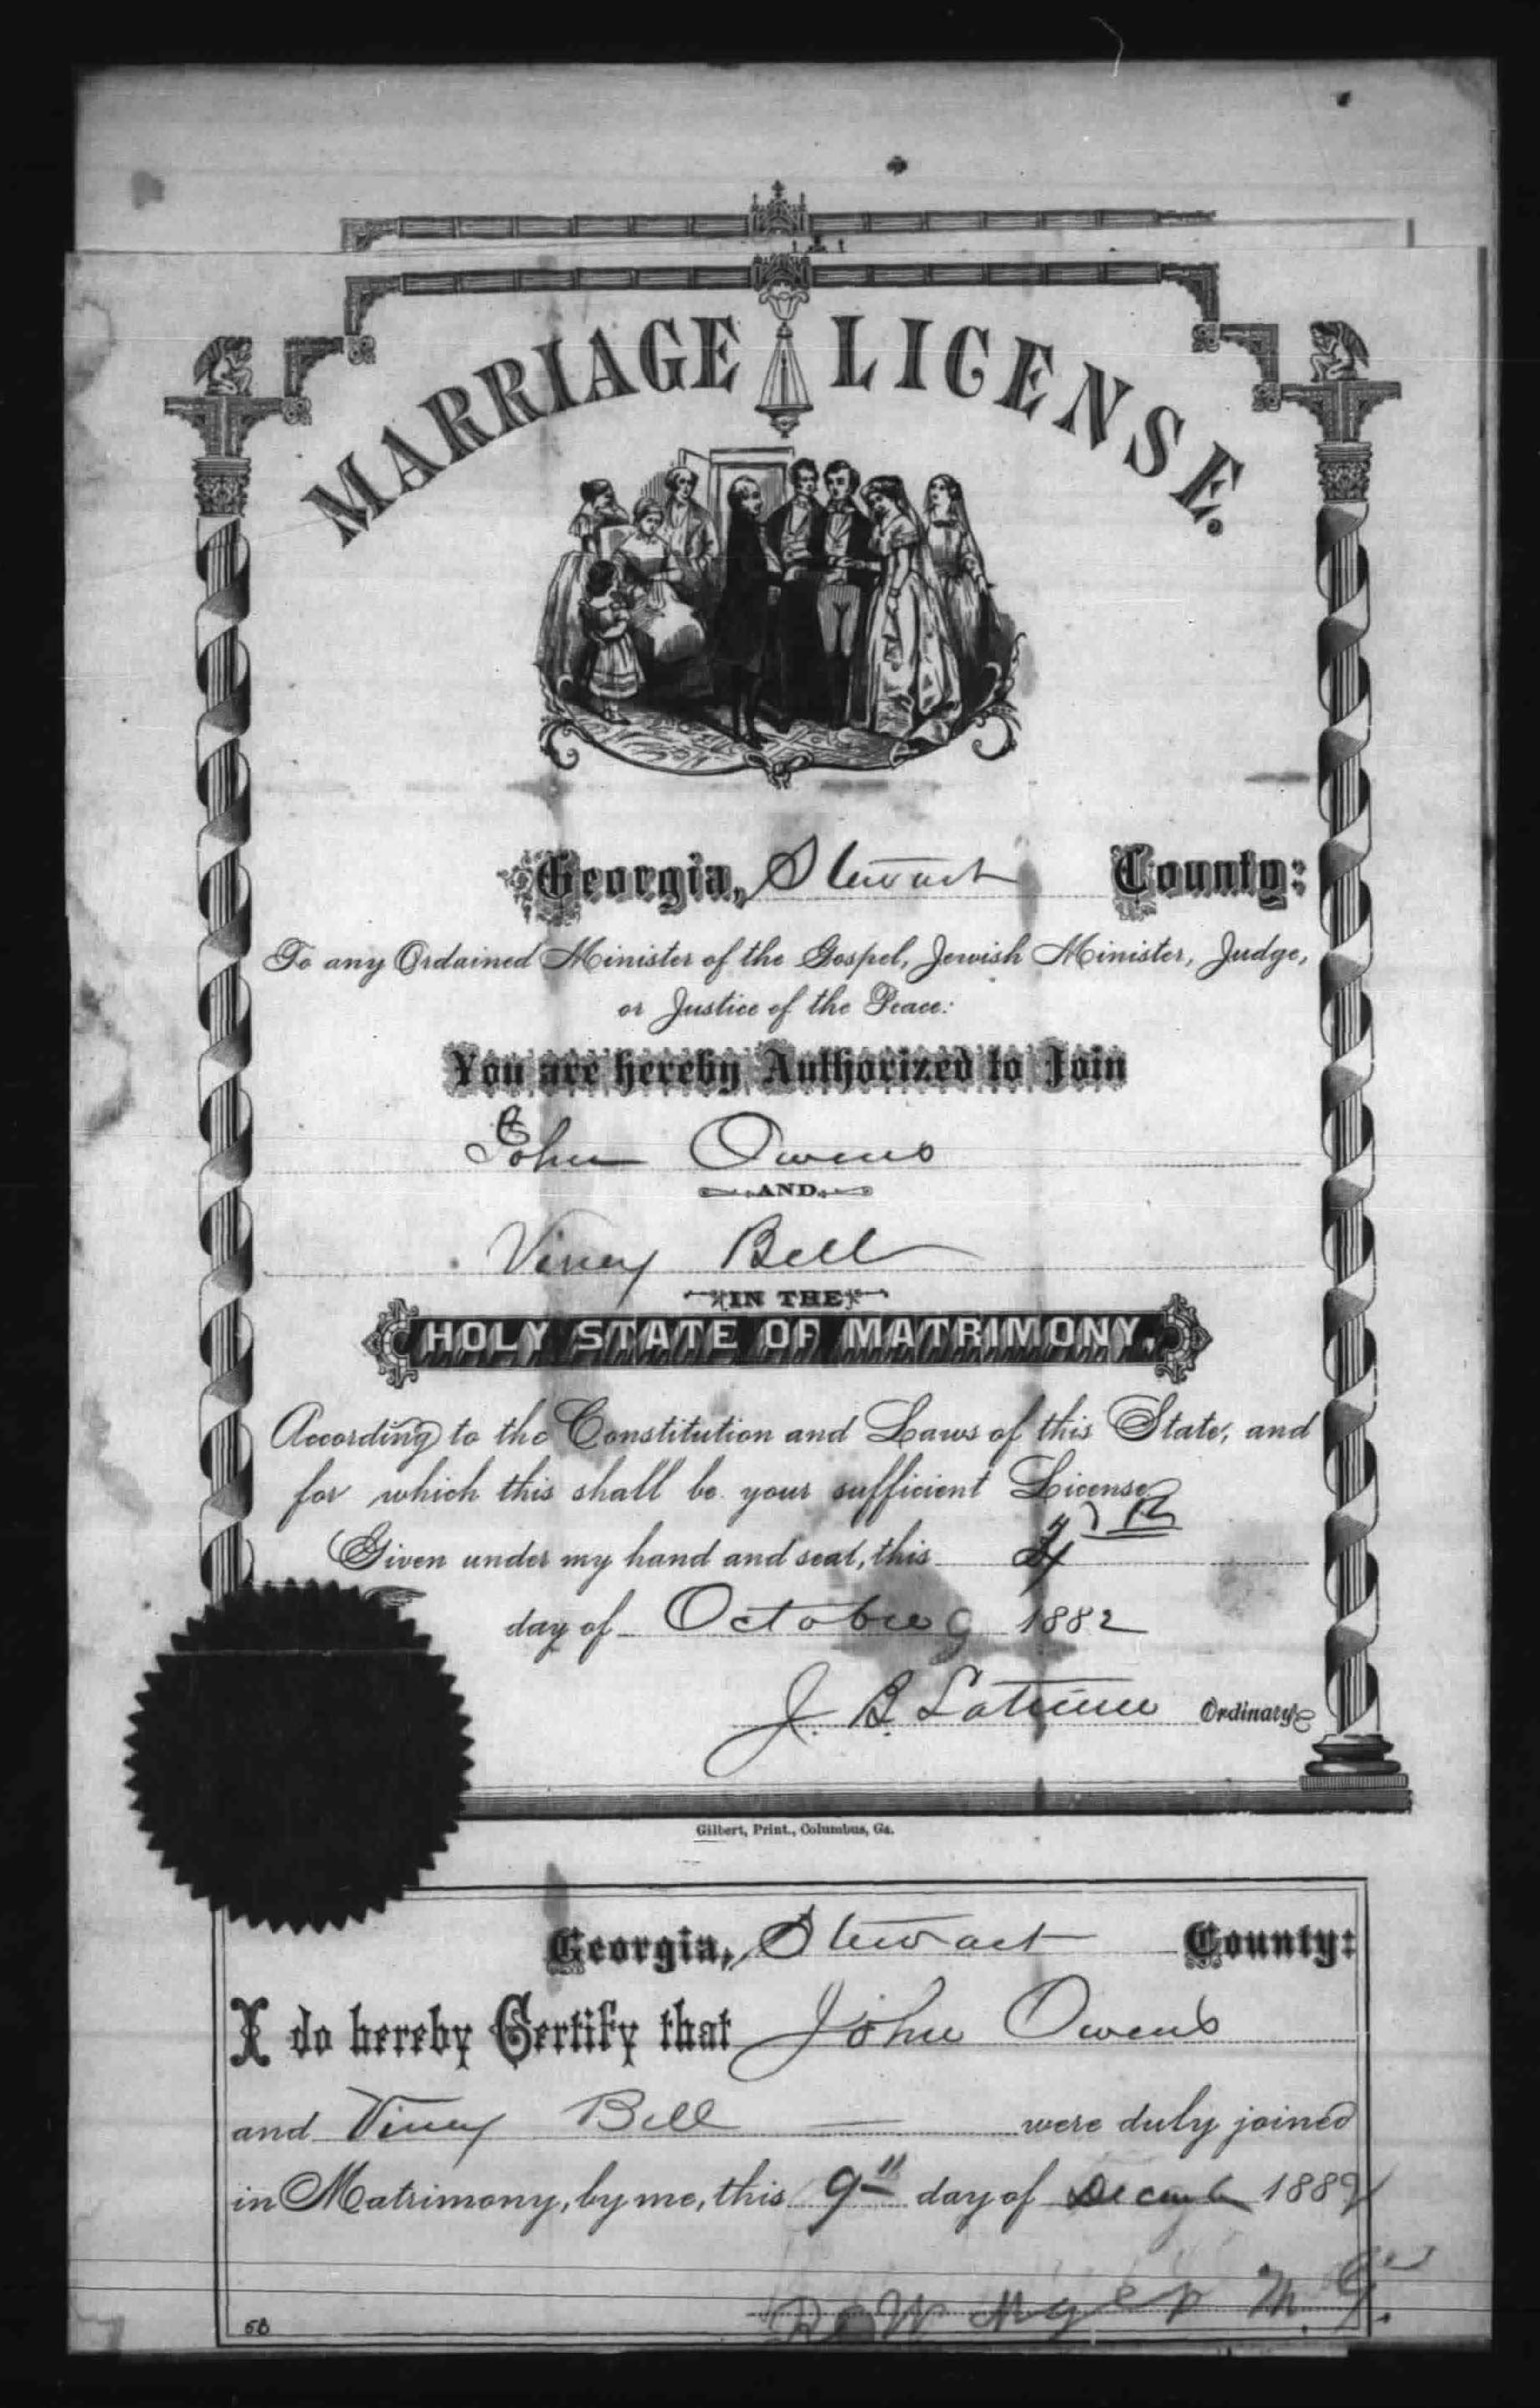 MARRIAGE LICENSE.
Georgia, Stewart County:
To any Ordained Minister of the Gospel, Jewish Minister, Judge,
or Justice of the Peace:
You are hereby Authorized to Join
John Owens
AND
Viney Bell
IN THE
HOLY STATE OF MATRIMONY.
According to the Constitution and Laws of this State, and
for which this shall be your sufficient License
Given under my hand and seal, this
day of October 1882
J. B. Latimer Ordinary
Gilbert, Print., Columbus, Ga.
Georgia, Stewart County:
I do hereby Certify that John Owens
and Viney Bell were duly joined
in Matrimony, by me, this 9th day of Decemb 1882
M. G.